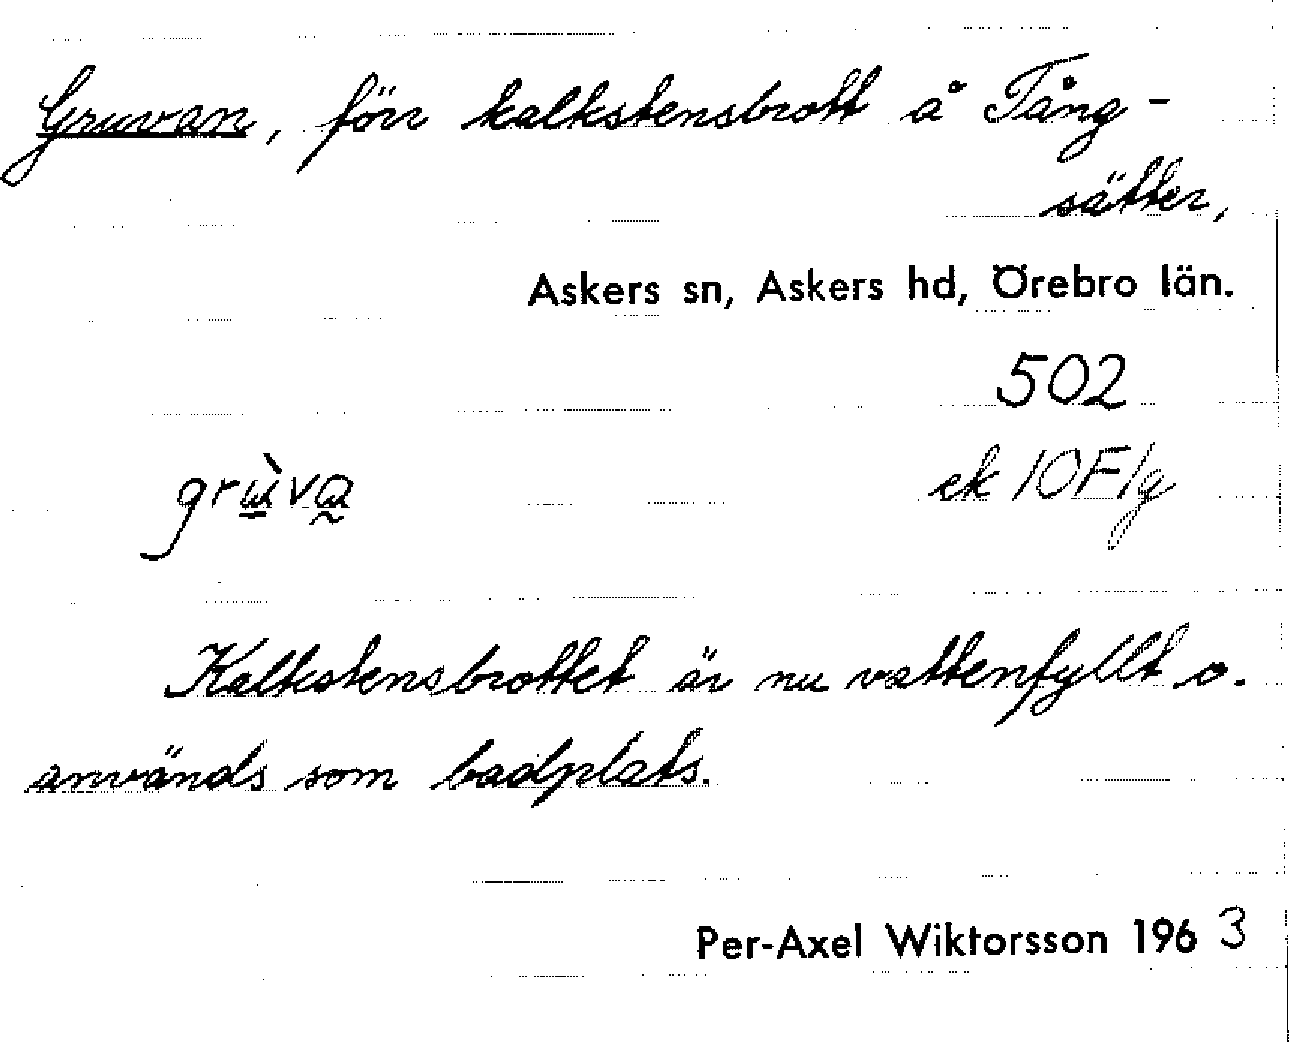 Gruvan, förr kalkstensbrott å Tång-
sätter,
Askers sn, Askers hd, Örebro län.
502
ek 10F/g
Kalkstensbrottet är nu vattenfyllt o.
används som badplats.
Per-Axel Wiktorsson 1963